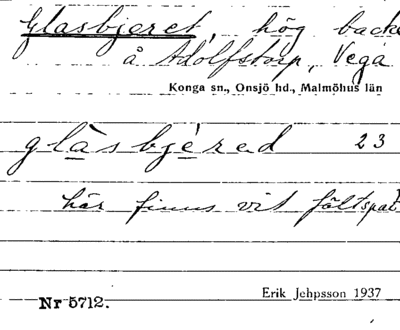 Glasbjeret, hög backe
å Adolfstorp, Vega
Konga sn., Onsjö hd., Malmöhus län
glàsbjéred 23
här finns vit fältspat
Erik Jehpsson 1937
Nr 5712.